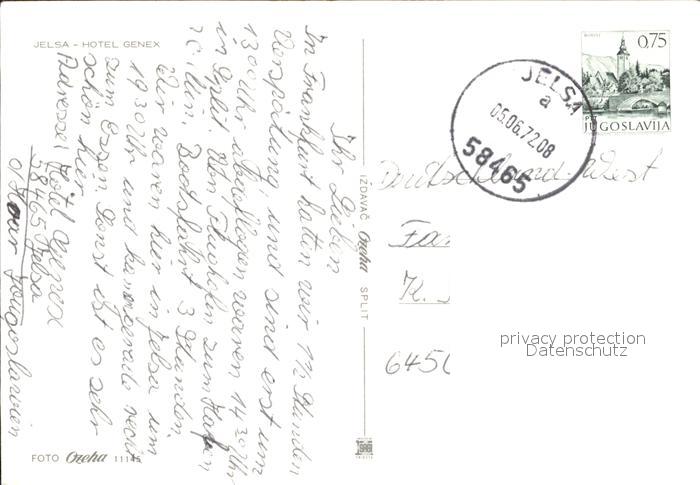 JELSA - HOTEL GENEX
Ihr Lieben
In Frankfurt hatten wir 1½ Stunden
Verspätung und sind erst um
13 00 Uhr abgeflogen, waren 14 30 Uhr
in Split. Von Flughafen zum Hafen
20 Min, Bootsfahrt 3 Stunden.
Wir waren hier in Jelsa um
19 30 Uhr und kamen gerade recht
zum Essen. Sonst ist es sehr
schön hier.
Adresse: Hotel Genex
58465 Jelsa
o/Hvar Jugoslavien
FOTO Ozeha 11145
IZDAVAČ Ozeha SPLIT
JELSA
a
05.06.72.08
58465
0,75
PTT
JUGOSLAVIJA
Deutschland-West
Fa
K.
6450
privacy protection
Datenschutz